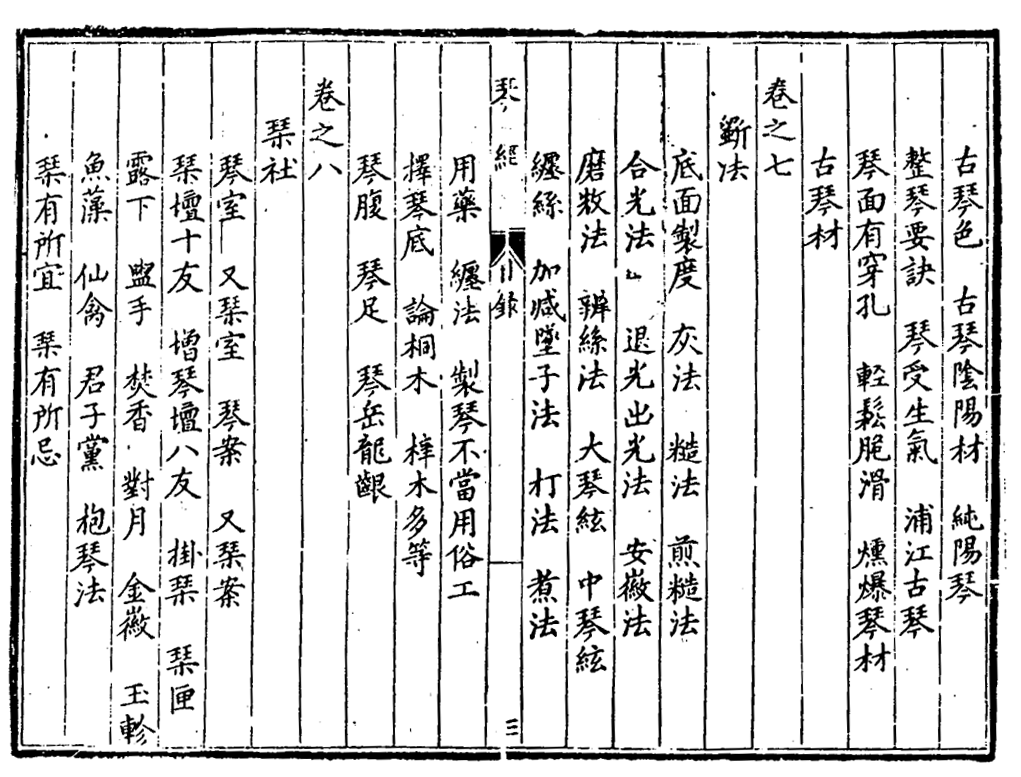 古琴色　古琴陰陽材　純陽琴
整琴要訣　琴受生氣　浦江古琴
琴面有穿孔　輕鬆脆滑　爁爆琴材
古琴材
卷之七
斵法
底面製度　灰法　糙法　煎糙法
合光法　退光出光法　安徽法
磨敉法　辨絲法　大琴絃　中琴絃
纏絲　加减墜子法　打法　煮法
琴經　目録　三
用藥　纏法　製琴不當用俗工
擇琴底　論桐木　梓木多等
琴腹　琴足　琴岳龍齦
卷之八
琹社
琴室　又琹室　琴案　又琹案
琹壇十友　增琴壇八友　掛琹　琹匣
露下　盥手　焚香　對月　金徽　玉軫
魚藻　仙禽　君子黨　枹琴法
琹有所宜　琹有所忌